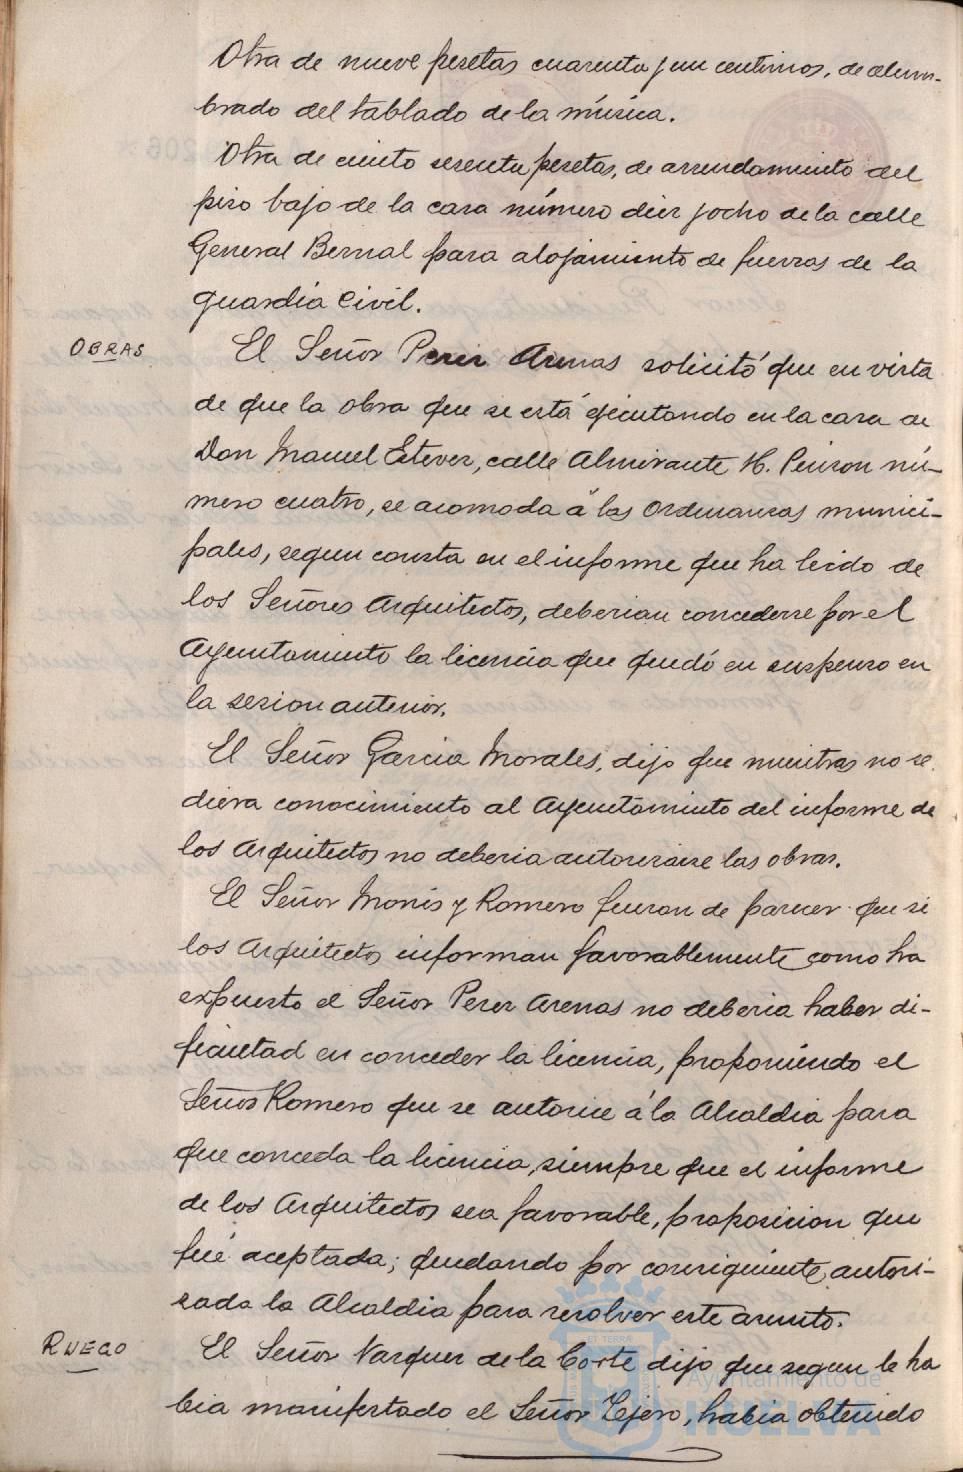 Otra de nueve pesetas cuarenta y un centimos, de alum-
brado del tablado de la música.
Otra de ciento sesenta pesetas, de arrendamiento del
piso bajo de la casa número diez y ocho de la calle
General Bernal para alojamiento de fuerzas de la
guardia Civil.
OBRAS
El Señor Perez Arenas solicitó que en vista
de que la obra que se está ejecutando en la casa de
Don Manuel Estevez, calle Almirante H. Pinzon nú-
mero cuatro, se acomoda á las Ordenanzas munici-
pales, segun consta en el informe que ha leido de
los Señores Arquitectos, deberian concederse por el
Ayuntamiento la licencia que quedó en suspenso en
la sesion anterior.
El Señor Garcia Morales, dijo que mientras no se
diera conocimiento al Ayuntamiento del informe de
los Arquitectos no deberia autorizarse las obras.
El Señor Monis y Romero fueron de parecer que si
los Arquitectos informan favorablemente como ha
expuesto el Señor Perez Arenas no deberia haber di-
ficultad en conceder la licencia, proponiendo el
Señor Romero que se autorice á la Alcaldia para
que conceda la licencia, siempre que el informe
de los Arquitectos sea favorable, proposicion que
fué aceptada; quedando por consiguiente, autori-
zada la Alcaldia para resolver este asunto.
RUEGO
El Señor Vazquez de la Corte dijo que segun le ha
bia manifestado el Señor Tejero, habia obtenido
ET TERRÆ
Ayuntamiento de
HUELVA